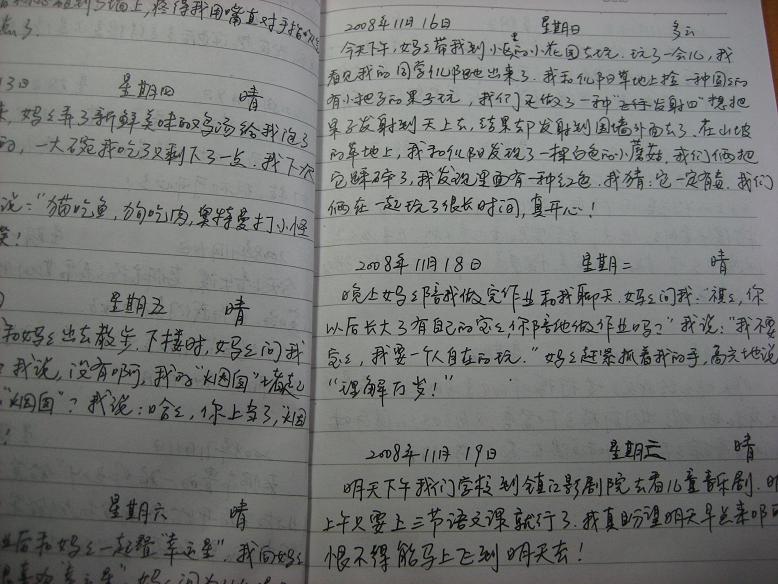 疼得我用嘴直对手指吹气
3日 星期四 晴
妈妈弄了新鲜美味的鸡汤给我泡了
的,一大碗我吃了又剩下了一点.我下次
说:"猫吃鱼,狗吃肉,奥特曼打小怪
星期五 晴
和妈妈出去散步.下楼时,妈妈问我
我说,没有啊,我的"烟囱"堵起
"烟囱"?我说:哈哈,你上当了,烟囱
!
星期六 晴
后和妈妈一起叠"幸运星".我问妈妈
2008年11月16日 星期日 多云
今天下午,妈妈带我到小区里的小花园去玩.玩了一会儿,我
看见我的同学仉阳也出来了.我和仉阳草地上捡一种圆圆的
有小把子的果子玩,我们还做了一种"飞行发射四"想把
果子发射到天上去,结果却发射到围墙外面去了.在山坡
的草地上,我和仉阳发现了一棵白色的小蘑菇.我们俩把
它踩碎了,我发现里面有一种红色.我猜:它一定有毒.我们
俩在一起玩了很长时间,真开心!
2008年11月18日 星期二 晴
晚上妈妈陪我做完作业和我聊天.妈妈问我:"祺祺,你
以后长大了有自己的宝宝,你陪他做作业吗?"我说:"我不要
宝宝,我要一个人自在的玩."妈妈赶紧抓着我的手,高兴地说
"理解万岁!"
2008年11月19日 星期三 晴
明天下午我们学校到镇江影剧院去看儿童音乐剧.明
上午只要上三节语文课就行了.我真盼望明天早点来啊
恨不得能马上飞到明天去!